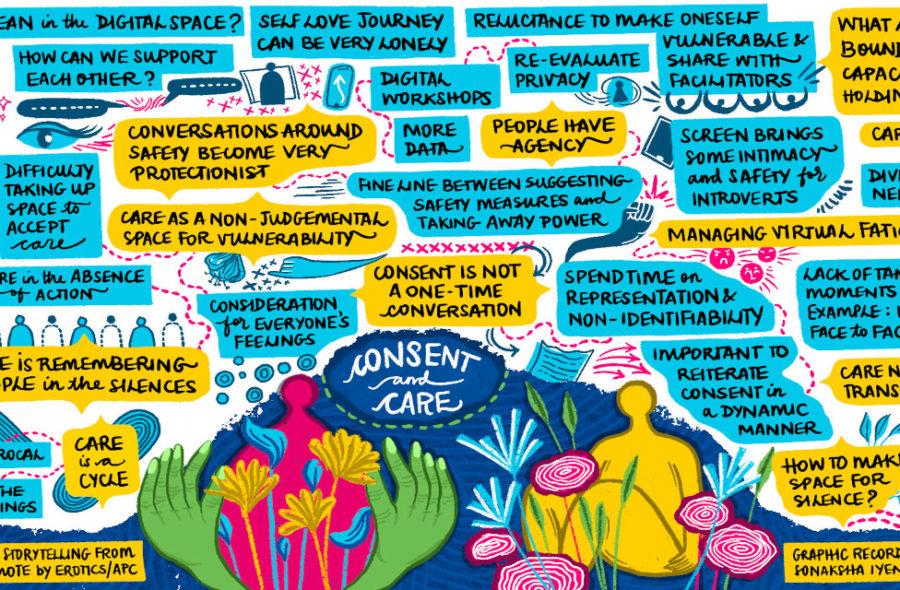 EAN in the DIGITAL SPACE?
SELF LOVE JOURNEY
CAN BE VERY LONELY
RELUCTANCE TO MAKE ONESELF
VULNERABLE &
SHARE WITH
FACILITATORS
WHAT A
BOUND
CAPAC
HOLDIN
HOW CAN WE SUPPORT
EACH OTHER?
DIGITAL
WORKSHOPS
RE-EVALUATE
PRIVACY
CONVERSATIONS AROUND
SAFETY BECOME VERY
PROTECTIONIST
MORE
DATA
PEOPLE HAVE
AGENCY
SCREEN BRINGS
SOME INTIMACY
and SAFETY for
INTROVERTS
CAR
DIFFICULTY
TAKING UP
SPACE to
ACCEPT
care
FINE LINE BETWEEN SUGGESTING
SAFETY MEASURES and
TAKING AWAY POWER
DIV
NE
CARE AS A NON-JUDGEMENTAL
SPACE FOR VULNERABILITY
MANAGING VIRTUAL FATIG
RE in the ABSENCE
of ACTION
CONSIDERATION
for EVERYONE'S
FEELINGS
CONSENT IS NOT
A ONE-TIME
CONVERSATION
SPEND TIME on
REPRESENTATION &
NON-IDENTIFIABILITY
LACK OF TAN
MOMENTS
EXAMPLE: 
FACE to FAC
E IS REMEMBERING
OPLE in the SILENCES
CONSENT
and
CARE
IMPORTANT TO
REITERATE
CONSENT in
a DYNAMIC
MANNER
CARE N
TRANS
ROCAL
THE
INGS
CARE
is a
CYCLE
HOW TO MAKE
SPACE FOR
SILENCE?
STORYTELLING FROM
NOTE BY EROTICS/APC
GRAPHIC RECORD
SONAKSHA IYEN